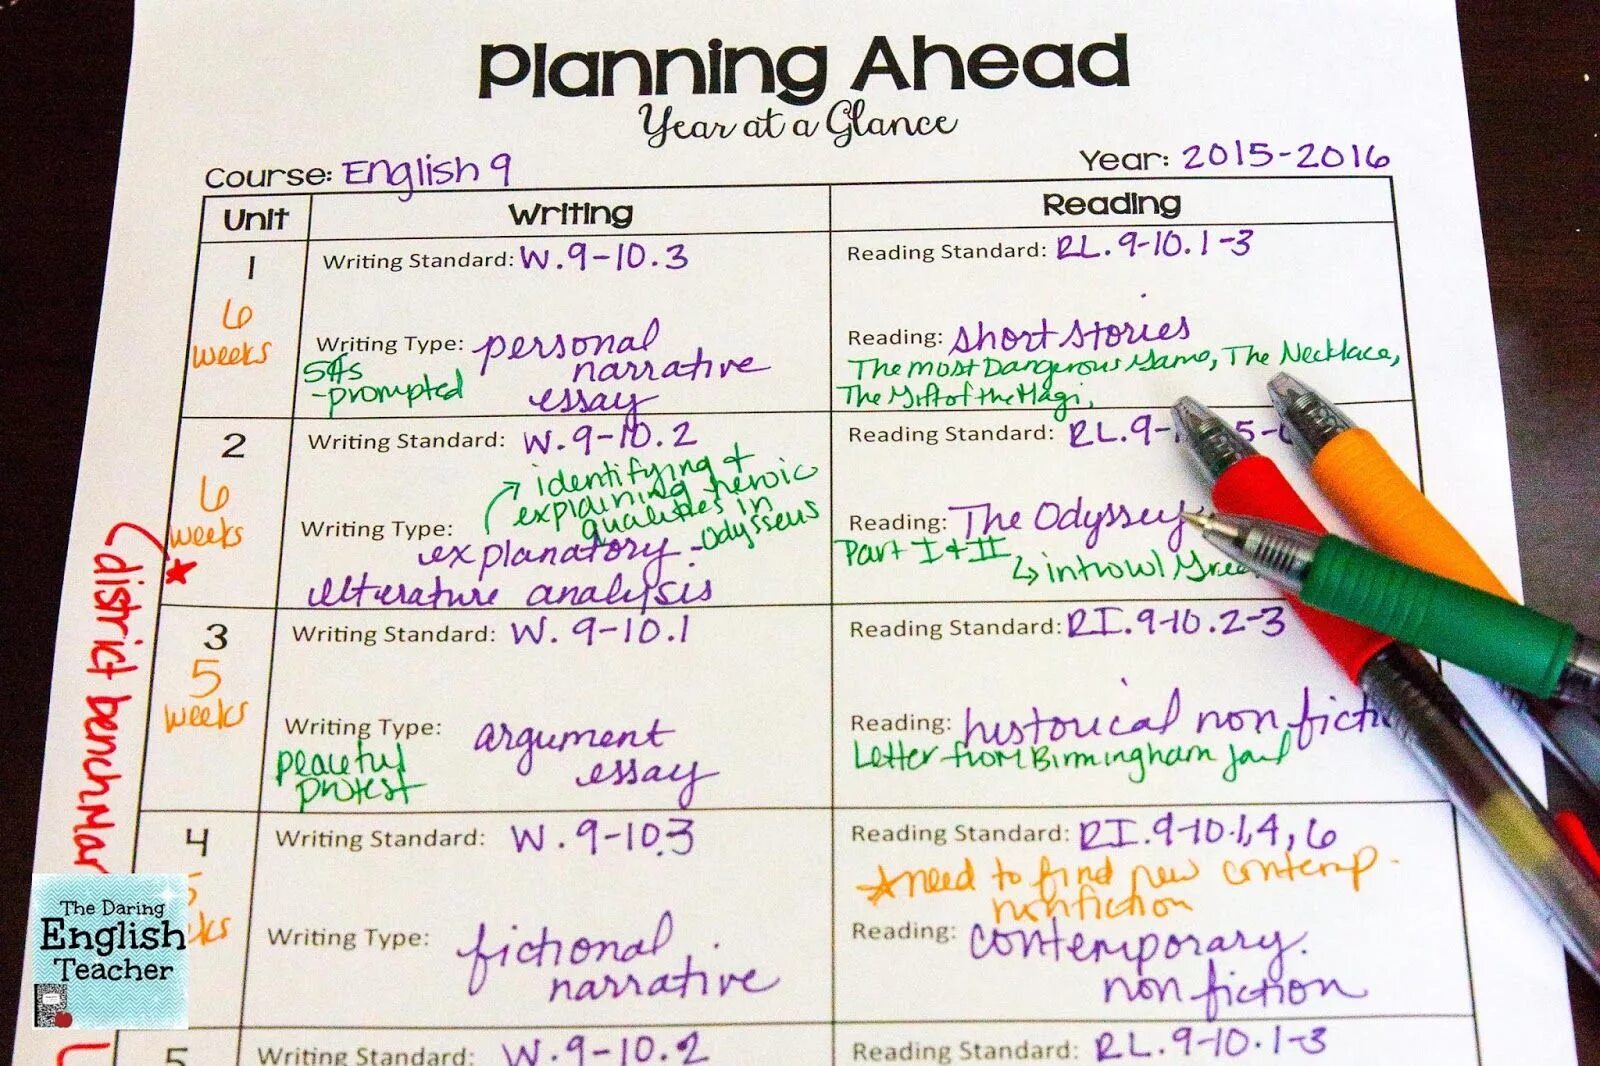 Planning Ahead
Year at a Glance
Course: English 9
Year: 2015-2016
Unit Writing Reading
1
6
weeks
Writing Standard: W.9-10.3
Writing Type: personal
narrative
essay
-prompted
Reading Standard: RL.9-10.1-3
Reading: short stories
The most Dangerous Game, The Necklace,
The Gift of the Magi,
2
6
weeks
Writing Standard: W.9-10.2
identifying +
explaining heroic
qualities in
Odysseus
Writing Type:
explanatory -
literature analysis
Reading Standard: RL.9-
Reading: The Odyssey
Part I + II
3
5
weeks
Writing Standard: W. 9-10.1
Writing Type: argument
essay
peaceful
protest
Reading Standard: RI.9-10.2-3
Reading: historical non
Letter from Birmingham Jail
4
5
Writing Standard: W.9-10.3
Writing Type: fictional
narrative
Reading Standard: RI.9-10.1,4,6
need to find new contemp.
nonfiction
Reading: contemporary
non fiction
5
Writing Standard: W.9-10.2
Reading Standard: RL.9-10.1-3
district
The Daring
English
Teacher